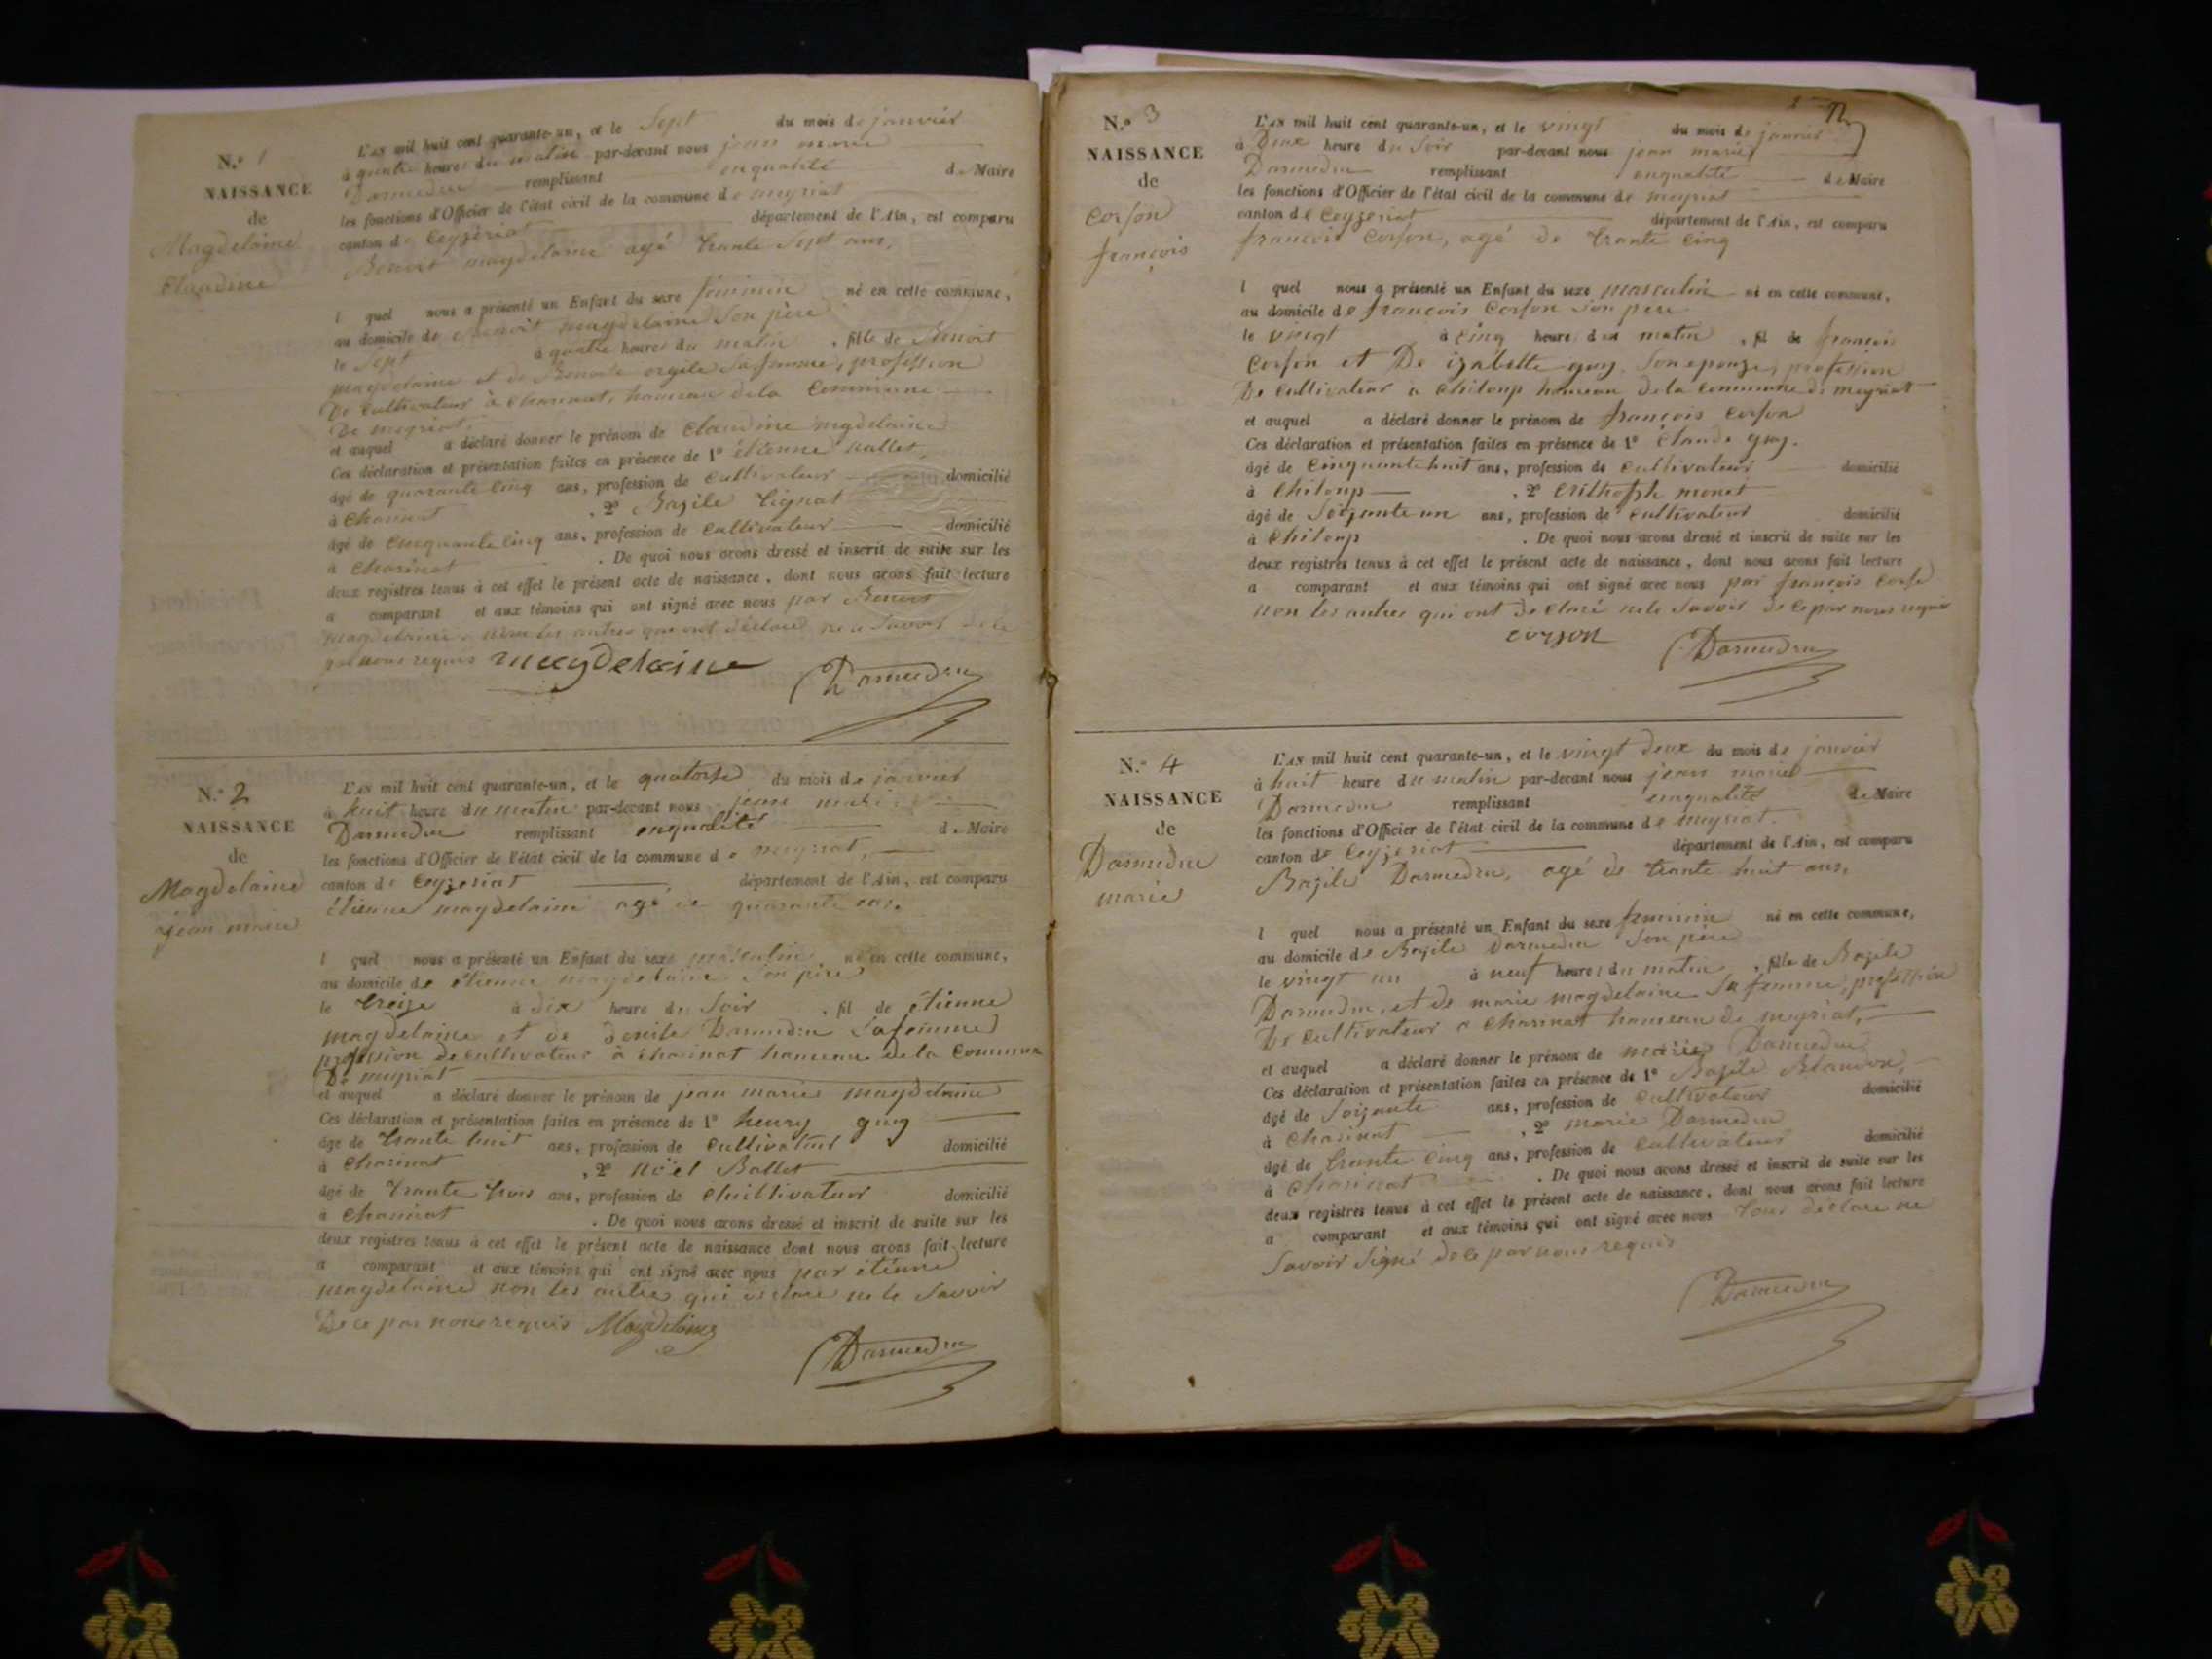 N.o 1
NAISSANCE
de
Magdelaine
Claudine
L'AN mil huit cent quarante-un, et le Sept du mois de janvier
à quatre heures du matin par-devant nous jean marie
Darmedru remplissant enqualité de Maire
les fonctions d'Officier de l'état civil de la commune de meyriat
canton de Ceyzériat département de l'Ain, est comparu
Benoit magdelaine agé trante Sept ans,
l quel nous a présenté un Enfant du sexe feminin né en cette commune,
au domicile de Benoit magdelaine Son père
le Sept à quatre heures du matin, fille de Benoit
magdelaine et de Safemme, profession
De Cultivateur à Charinat, hameau dela Commune
De meyriat.
et auquel a déclaré donner le prénom de Claudine mgdelaine
Ces déclaration et présentation faites en présence de 1o étienne
âgé de quarante Cinq ans, profession de Cultivateur domicilié
à Charinat, 2o Bazile
âgé de Cinquante Cinq ans, profession de Cultivateur domicilié
à Charinat. De quoi nous avons dressé et inscrit de suite sur les
deux registres tenus à cet effet le présent acte de naissance, dont nous avons fait lecture
a comparant et aux témoins qui ont signé avec nous par Benoit
magdelaine non les autres qui ont déclaré ne le Savoir dece
par nous requis magdelaine Darmedru
N.o 2
NAISSANCE
de
Magdelaine
jean marie
L'AN mil huit cent quarante-un, et le quatorse du mois de janvier
à huit heure du matin par-devant nous jean marie
Darmedru remplissant enqualité de Maire
les fonctions d'Officier de l'état civil de la commune de meyriat,
canton de Ceyzeriat département de l'Ain, est comparu
étienne magdelaine agé de quarante ans.
l quel nous a présenté un Enfant du sexe masculin né en cette commune,
au domicile de étienne magdelaine Son père
le treize à dix heure du Soir, fil de étienne
magdelaine et de Darmedru Safemme
profession decultivateur à Charinat hameau dela Commune
De meyriat
et auquel a déclaré donner le prénom de jean marie magdelaine
Ces déclaration et présentation faites en présence de 1o henry guy
âgé de trante huit ans, profession de Cultivatur domicilié
à Charinat, 2o noël Ballet
âgé de trante trois ans, profession de Chultivateur domicilié
à Charinat. De quoi nous avons dressé et inscrit de suite sur les
deux registres tenus à cet effet le présent acte de naissance dont nous avons fait lecture
a comparant et aux témoins qui ont signé avec nous par étienne
magdelaine non les autres qui déclare ne le Savoir
Dece par nous requis Magdelaine
Darmedru
N.o 3
NAISSANCE
de
Corson
françois
L'AN mil huit cent quarante-un, et le vingt du mois de janvier
à Deux heure du Soir par-devant nous jean marie
Darmedru remplissant enqualité de Maire
les fonctions d'Officier de l'état civil de la commune de meyriat
canton de Ceyzeriat département de l'Ain, est comparu
françois Corson, agé de trante Cinq
l quel nous a présenté un Enfant du sexe masculin né en cette commune,
au domicile de francois Corson Son père
le vingt à Cinq heure du matin, fil de francois
Corson et De izabelle guy. Son epouze, profession
De Cultivateur a Chiloup hameau dela Commune de meyriat
et auquel a déclaré donner le prénom de françois Corson
Ces déclaration et présentation faites en présence de 1o Claude guy.
âgé de Cinquante huit ans, profession de Cultivateur domicilié
à Chiloup, 2o monet
âgé de Soizante un ans, profession de Cultivateur domicilié
à Chiloup. De quoi nous avons dressé et inscrit de suite sur les
deux registres tenus à cet effet le présent acte de naissance, dont nous avons fait lecture
a comparant et aux témoins qui ont signé avec nous par françois Corson
non les autres qui ont declaré nele Savoir dece par nous requis
corson Darmedru
N.o 4
NAISSANCE
de
Darmedru
marie
L'AN mil huit cent quarante-un, et le vingt deux du mois de janvier
à huit heure du matin par-devant nous jean marie
Darmedru remplissant enqualité de Maire
les fonctions d'Officier de l'état civil de la commune de meyriat.
canton de Ceyzeriat département de l'Ain, est comparu
Bazile Darmedru, agé de trante huit ans,
l quel nous a présenté un Enfant du sexe feminin né en cette commune,
au domicile de Bazile Darmedru Son père
le vingt un à neuf heures du matin, fille de Bazile
Darmedru, et de marie magdelaine Sa femme, profession
De Cultivateur a Charinat hameau de meyriat,
et auquel a déclaré donner le prénom de marie Darmedru
Ces déclaration et présentation faites en présence de 1o Bazile Blandon,
âgé de Soizante ans, profession de Cultivateur domicilié
à Charinat, 2o marie Darmedru
âgé de trante Cinq ans, profession de Cultivateur domicilié
à Charinat. De quoi nous avons dressé et inscrit de suite sur les
deux registres tenus à cet effet le présent acte de naissance, dont nous avons fait lecture
a comparant et aux témoins qui ont signé avec nous tous déclare ne
Savoir Signé dece par nous requis
Darmedru